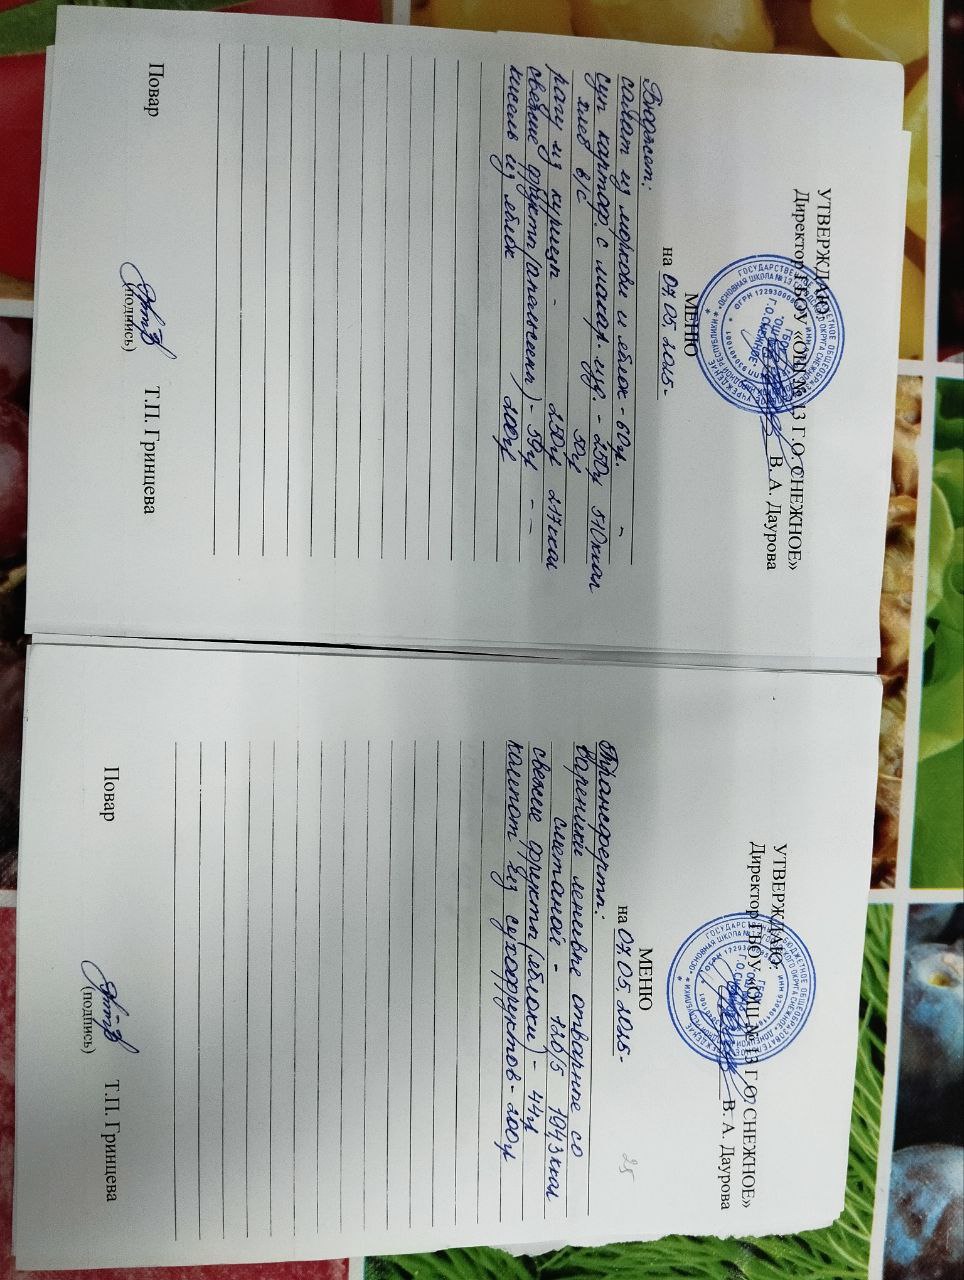 УТВЕРЖДАЮ
Директор ГБОУ «ОШ № 13 Г.О. СНЕЖНОЕ»
В. А. Даурова
МЕНЮ
на 07.05.2025-
Бюджет:
салат из моркови и яблок - 60г. -
суп картоф. с макар. изд. - 250г 510ккал
хлеб в/с 50г
рагу из курицы - 250г 217ккал
свежие фрукты (апельсин) - 59г - -
кисель из яблок 200г
Повар
(подпись)
Т.П. Гринцева
УТВЕРЖДАЮ:
Директор ГБОУ «ОШ № 13 Г.О. СНЕЖНОЕ»
В. А. Даурова
МЕНЮ
на 07.05.2025-
25
Трансферты:
вареники ленивые отварные со
сметаной - 120/5 194,3ккал
свежие фрукты (яблоки) - 44г
компот из сухофруктов - 200г
Повар
(подпись)
Т.П. Гринцева